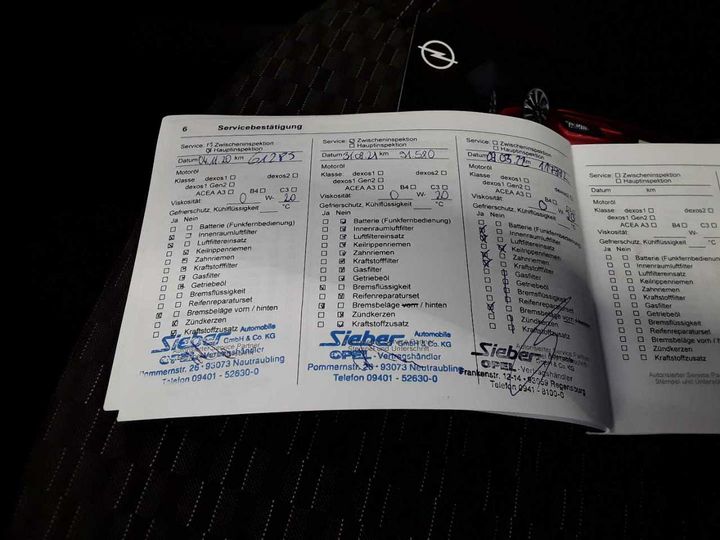 6 Servicebestätigung
Service: Zwischeninspektion
Hauptinspektion
Datum 04.11.20 km 61285
Motoröl
Klasse dexos1 dexos2
dexos1 Gen2
ACEA A3 B4 C3
Viskosität 0 W- 20
Gefrierschutz, Kühlflüssigkeit °C
Ja Nein
Batterie (Funkfernbedienung)
Innenraumluftfilter
Luftfiltereinsatz
Keilrippenriemen
Zahnriemen
Kraftstofffilter
Gasfilter
Getriebeöl
Bremsflüssigkeit
Reifenreparaturset
Bremsbeläge vorn / hinten
Zündkerzen
Kraftstoffzusatz
Sieber Automobile
GmbH & Co. KG
OPEL - Vertragshändler
Pommernstr. 26 - 93073 Neutraubling
Telefon 09401 - 52630-0
Service: Zwischeninspektion
Hauptinspektion
Datum 31.08.21 km 91580
Motoröl
Klasse dexos1 dexos2
dexos1 Gen2
ACEA A3 B4 C3
Viskosität 0 W- 20
Gefrierschutz, Kühlflüssigkeit °C
Ja Nein
Batterie (Funkfernbedienung)
Innenraumluftfilter
Luftfiltereinsatz
Keilrippenriemen
Zahnriemen
Kraftstofffilter
Gasfilter
Getriebeöl
Bremsflüssigkeit
Reifenreparaturset
Bremsbeläge vorn / hinten
Zündkerzen
Kraftstoffzusatz
Sieber Automobile
GmbH & Co. KG
Stempel und Unterschrift
OPEL - Vertragshändler
Pommernstr. 26 - 93073 Neutraubling
Telefon 09401 - 52630-0
Service: Zwischeninspektion
Hauptinspektion
Datum km
Motoröl
Klasse dexos1 dexos2
dexos1 Gen2
ACEA A3 B4 C3
Viskosität 0 W-
Gefrierschutz, Kühlflüssigkeit °C
Ja Nein
Batterie (Funkfernbedienung)
Innenraumluftfilter
Luftfiltereinsatz
Keilrippenriemen
Zahnriemen
Kraftstofffilter
Gasfilter
Getriebeöl
Bremsflüssigkeit
Reifenreparaturset
Bremsbeläge vorn / hinten
Zündkerzen
Sieber
GmbH & Co. KG
OPEL - Vertragshändler
Frankenstr. 12-14 - 93059 Regensburg
Telefon 0941 - 8100-0
Service: Zwischeninspektion
Hauptinspektion
Datum km
Motoröl
Klasse dexos1 dexos2
dexos1 Gen2
ACEA A3 B4 C3
Viskosität W-
Gefrierschutz, Kühlflüssigkeit
Ja Nein
Batterie (Funkfernbedienung
Innenraumluftfilter
Luftfiltereinsatz
Keilrippenriemen
Zahnriemen
Kraftstofffilter
Gasfilter
Getriebeöl
Bremsflüssigkeit
Reifenreparaturset
Bremsbeläge vorn / hinten
Zündkerzen
Kraftstoffzusatz
Autorisierter Service Pa
Stempel und Unterschr